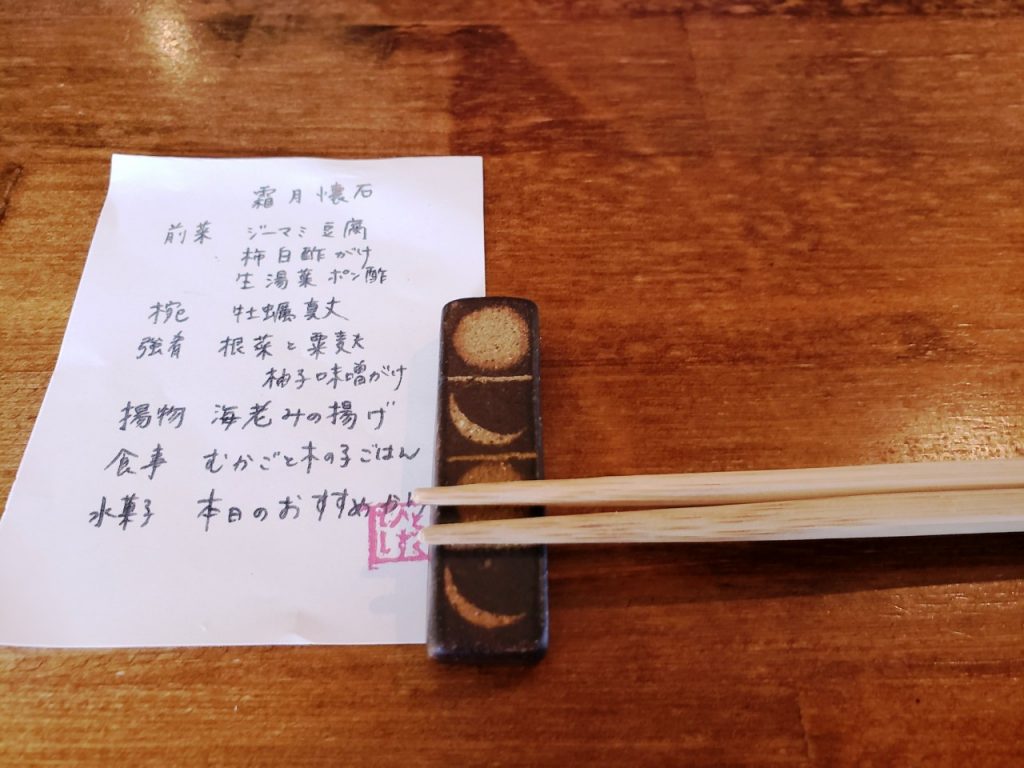 霜月懐石
前菜 ジーマミ豆腐
柿白酢がけ
生湯葉ポン酢
椀 牡蠣真丈
強肴 根菜と粟麸
柚子味噌がけ
揚物 海老みの揚げ
食事 むかごと木の子ごはん
水菓子 本日のおすすめ